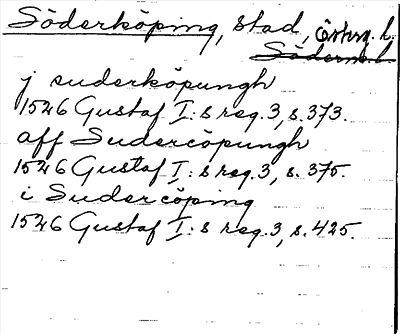 Söderköping, stad, Österg. l.
Söderm. l.
j suderköpungh
1526 Gustaf I:s reg. 3, s. 373.
aff Sudercöpungh
1526 Gustaf I:s reg. 3, s. 375.
i Sudercöping
1526 Gustaf I:s reg. 3, s. 425.